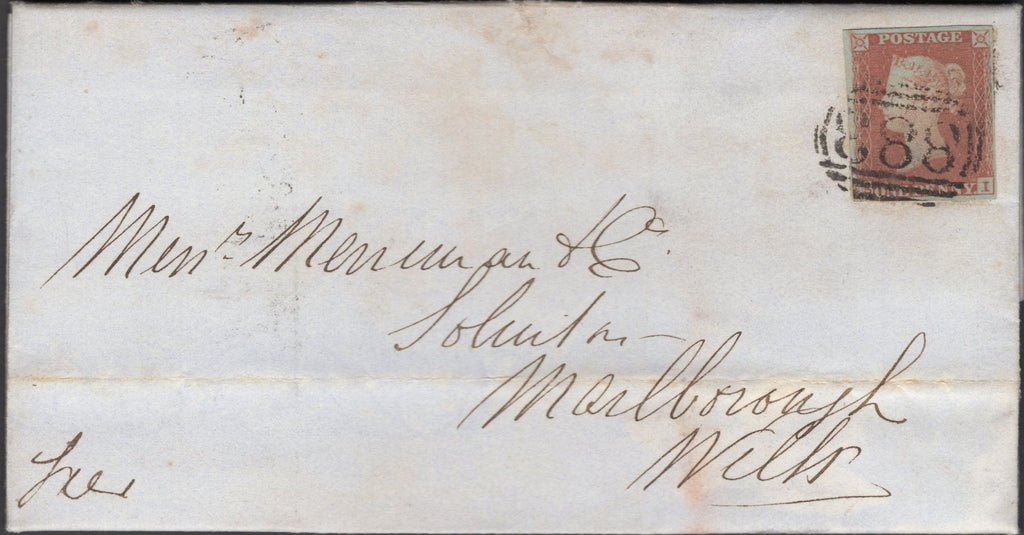 POSTAGE
ONE PENNY I
Messrs. Merriman & Co.
Solicitors
Marlborough
Wilts